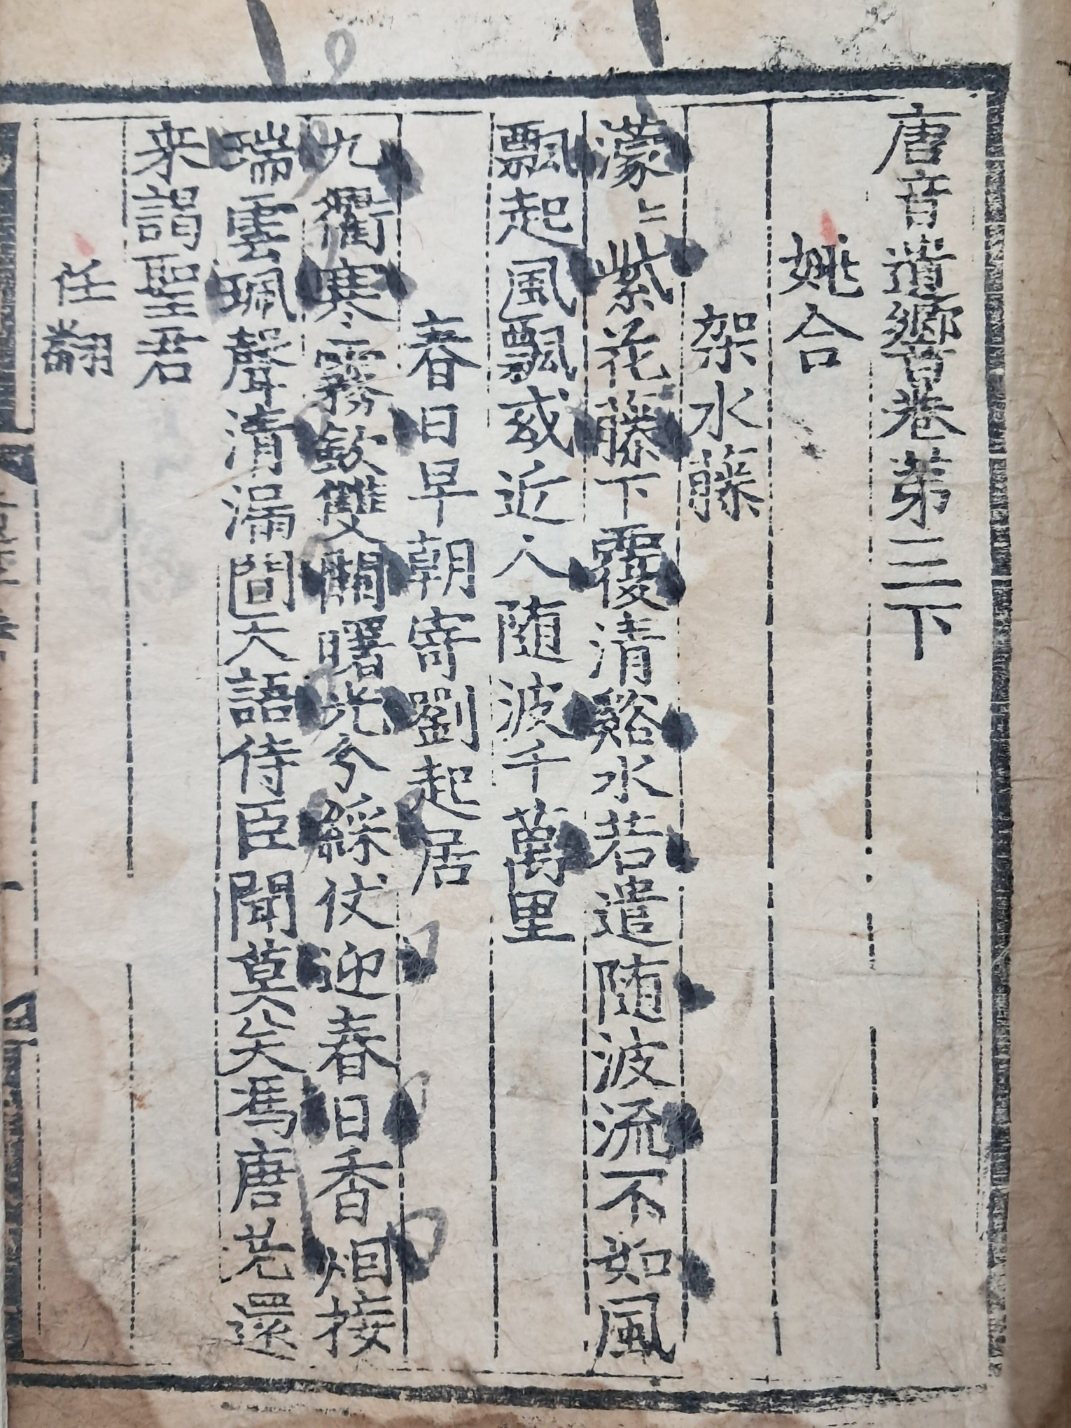 唐音遺響卷苐三下
姚合
架水藤
濛〻紫花藤下覆清谿水若遣随波流不如風
飄起風飄或近人随波千萬里
春日早朝寄劉起居
九衢寒霧斂雙闕曙光分綵仗迎春日香烟接
瑞雲珮聲清漏間天語侍臣聞莫笑馮唐老還
来謁聖君
任翻